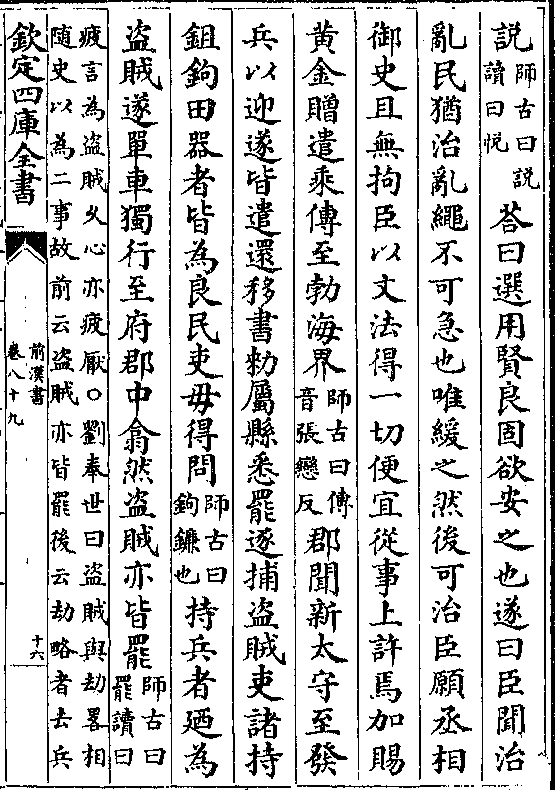 説師古曰説讀曰悦荅曰選用賢良固欲安之也遂曰臣聞治
亂民猶治亂繩不可急也唯緩之然後可治臣願丞相
御史且無拘臣以文法得一切便宜從事上許焉加賜
黄金贈遣乘傳至勃海界師古曰傳音張戀反郡聞新太守至發
兵以迎遂皆遣還移書勑屬縣悉罷逐捕盗賊吏諸持
鉏鉤田器者皆為良民吏毋得問師古曰鉤鐮也持兵者廼為
盗賊遂單車獨行至府郡中翕然盗賊亦皆罷師古曰罷讀曰
疲言為盗賊久心亦疲厭○劉奉世曰盗賊與劫畧相
随史以為二事故前云盗賊亦皆罷後云劫略者去兵
欽定四庫全書
前漢書
卷八十九
十六